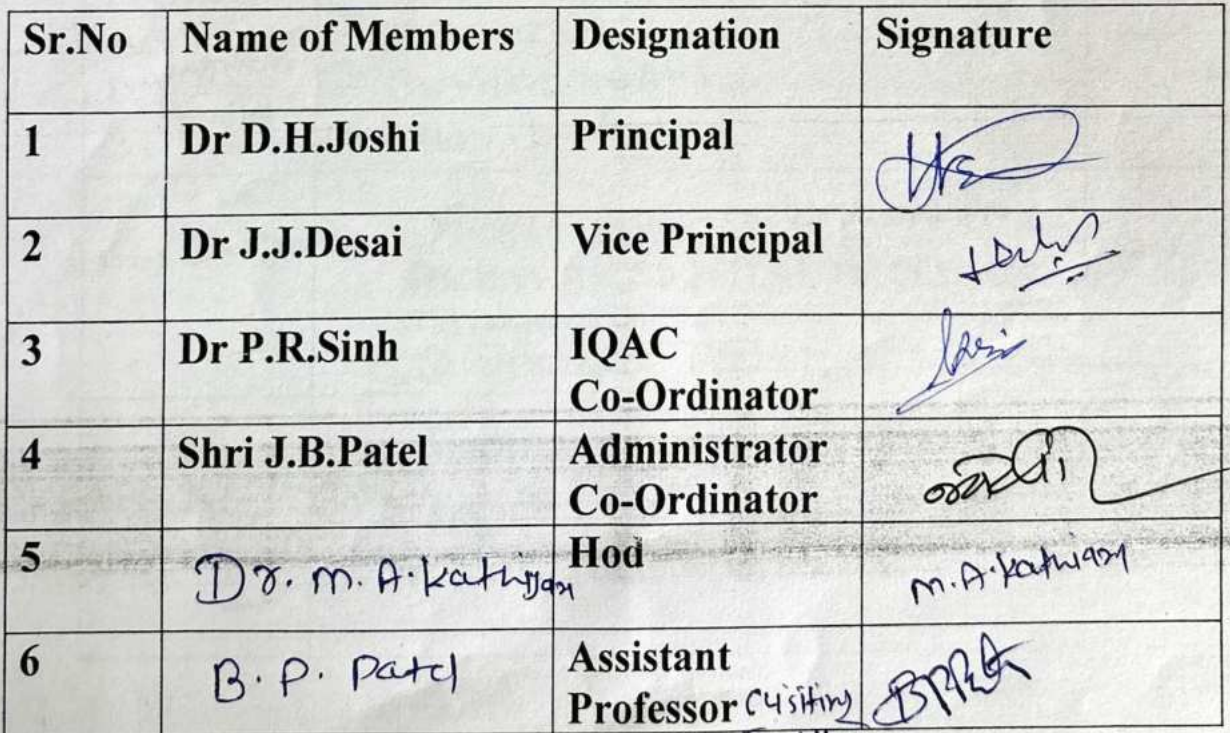 Sr.No Name of Members Designation Signature
1 Dr D.H.Joshi Principal
2 Dr J.J.Desai Vice Principal
3 Dr P.R.Sinh IQAC
Co-Ordinator
4 Shri J.B.Patel Administrator
Co-Ordinator
5 Dr. M. A. Hod M. A.
6 B. P. Patel Assistant
Professor